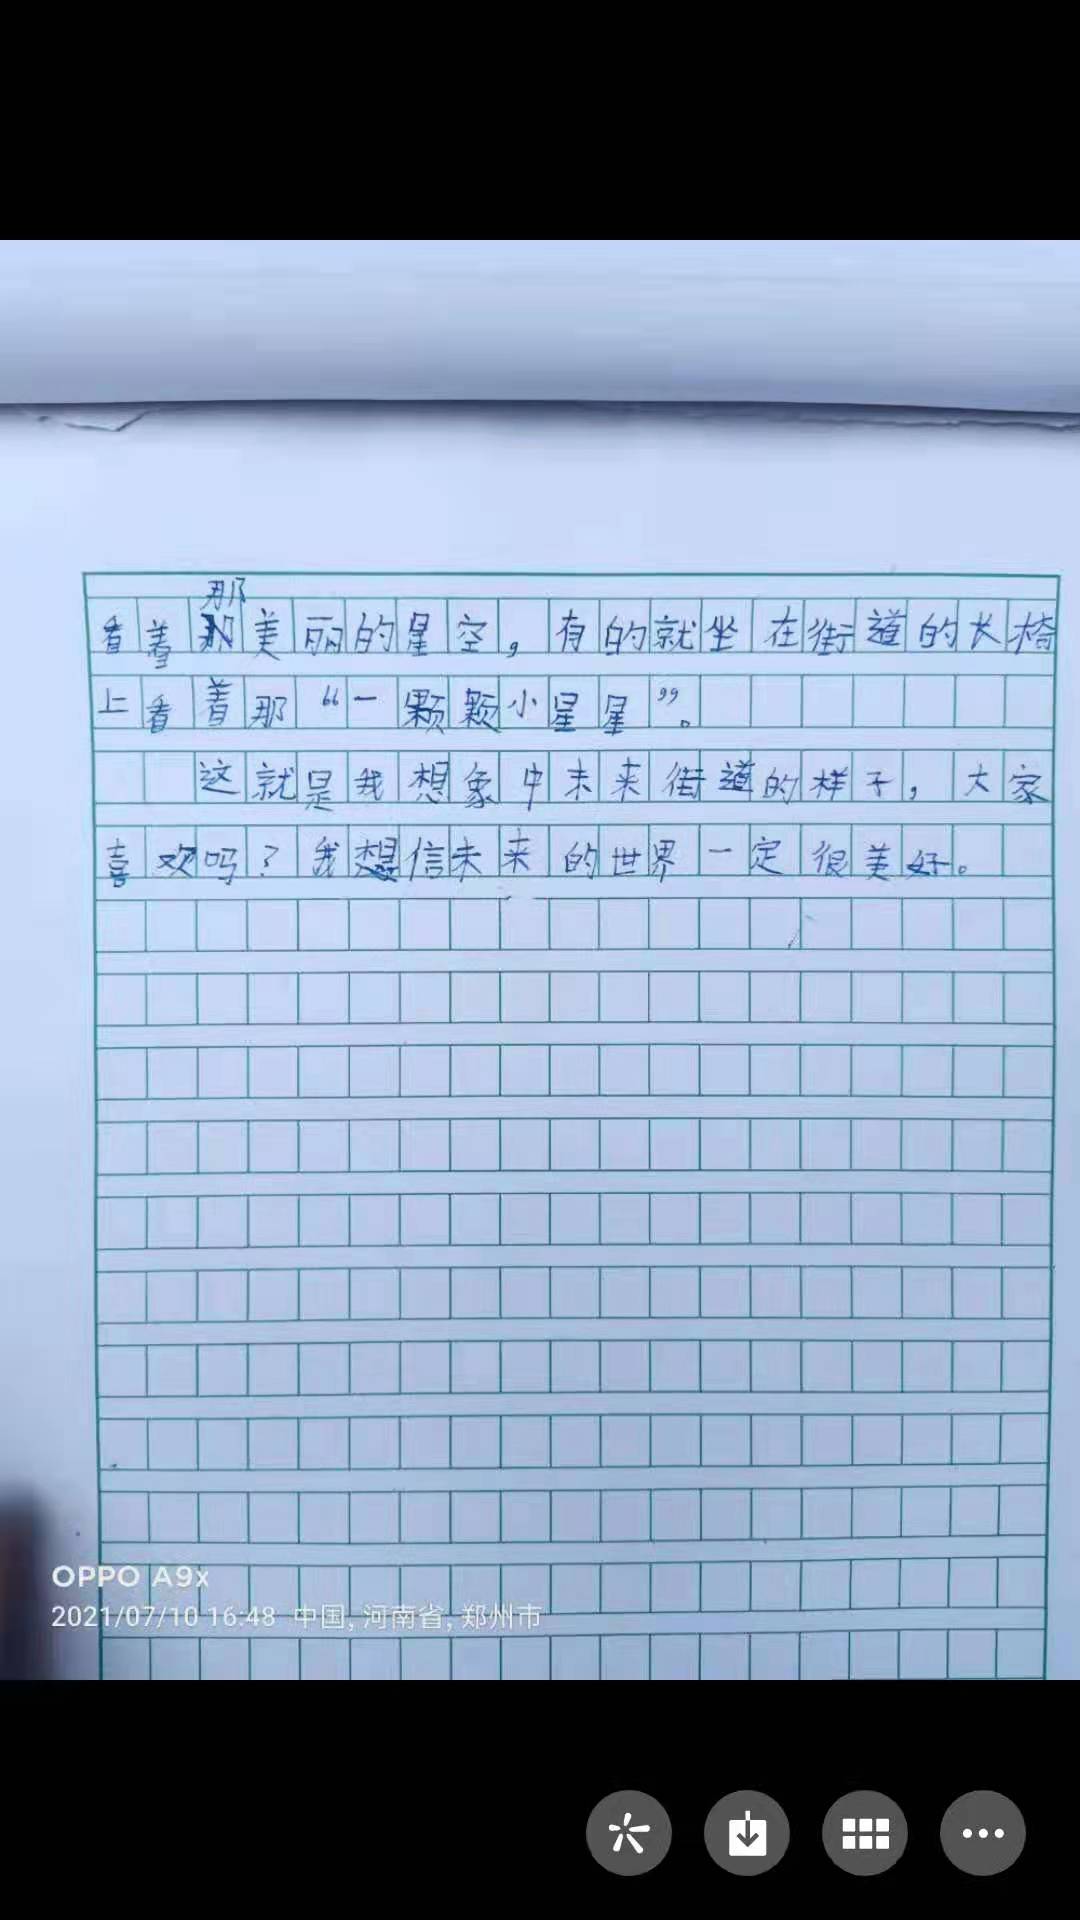 那
看着那美丽的星空，有的就坐在街道的长椅
上看着那“一颗颗小星星”。
这就是我想象中未来街道的样子，大家
喜欢吗？我想信未来的世界一定很美好。
OPPO A9x
2021/07/10 16:48 中国, 河南省, 郑州市